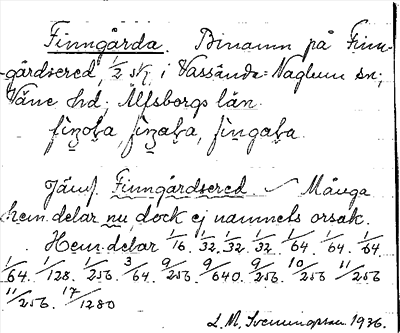 Finngårda. Binamn på Finn-
gårdsered, 1/2 sk/, i Vassända-Naglum sn;
Väne hd; Älfsborgs län.
Jämf. Finngårdsered. Många
hem.delar nu, dock ej namnets orsak.
Hem.delar 1/16. 1/32. 1/32. 1/32. 1/64. 1/64. 1/64
1/64. 1/128. 1/256. 3/64. 9/256. 9/640. 9/256. 10/256 11/256
11/256. 17/1280
L. M. Svenungsson 1936.